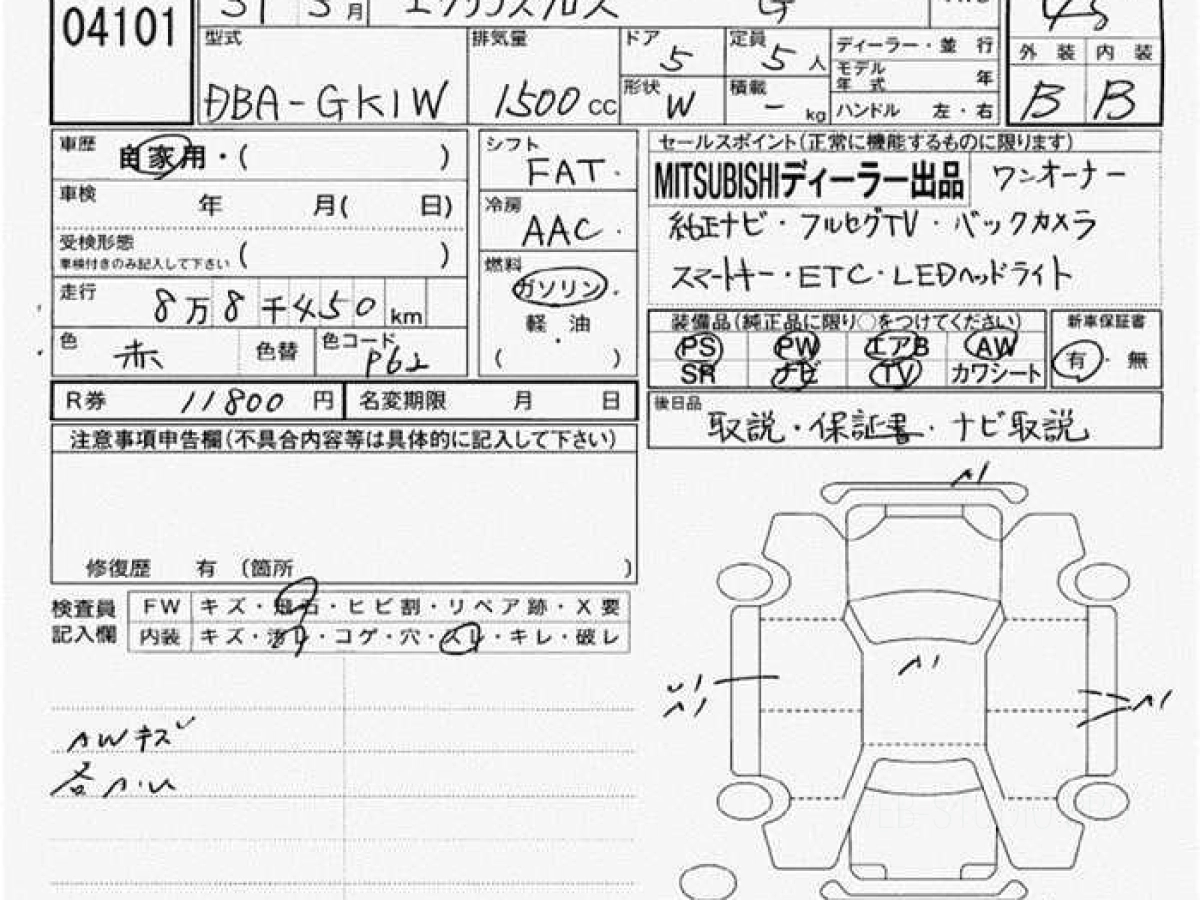 04101
31 3月 エクリプスクロス G
45
型式 DBA-GK1W
排気量 1500 CC
ドア 5
定員 5 人
形状 W
積載 - kg
ディーラー・並 行
モデル年式 年
ハンドル 左・右
外 装 内 装
B B
車歴 自家用・( )
車検 年 月( 日)
受検形態 ( )
車検付きのみ記入して下さい
走行 8万8千450 km
色 赤 色替 色コード P62
シフト FAT
冷房 AAC
燃料 ガソリン・
軽 油
( )
セールスポイント(正常に機能するものに限ります)
MITSUBISHIディーラー出品 ワンオーナー
純正ナビ・フルセグTV・バックカメラ
スマートキー・ETC・LEDヘッドライト
装備品(純正品に限り○をつけてください)
PS PW エアB AW
SR ナビ TV カワシート
新車保証書
有・無
R券 11800 円 名変期限 月 日
後日品
取説・保証書・ナビ取説
注意事項申告欄(不具合内容等は具体的に記入して下さい)
修復歴 有 (箇所 )
検査員記入欄
FW キズ・飛石・ヒビ割・リペア跡・X要
内装 キズ・汚レ・コゲ・穴・スレ・キレ・破レ
AWキズ
A1
A1
A1